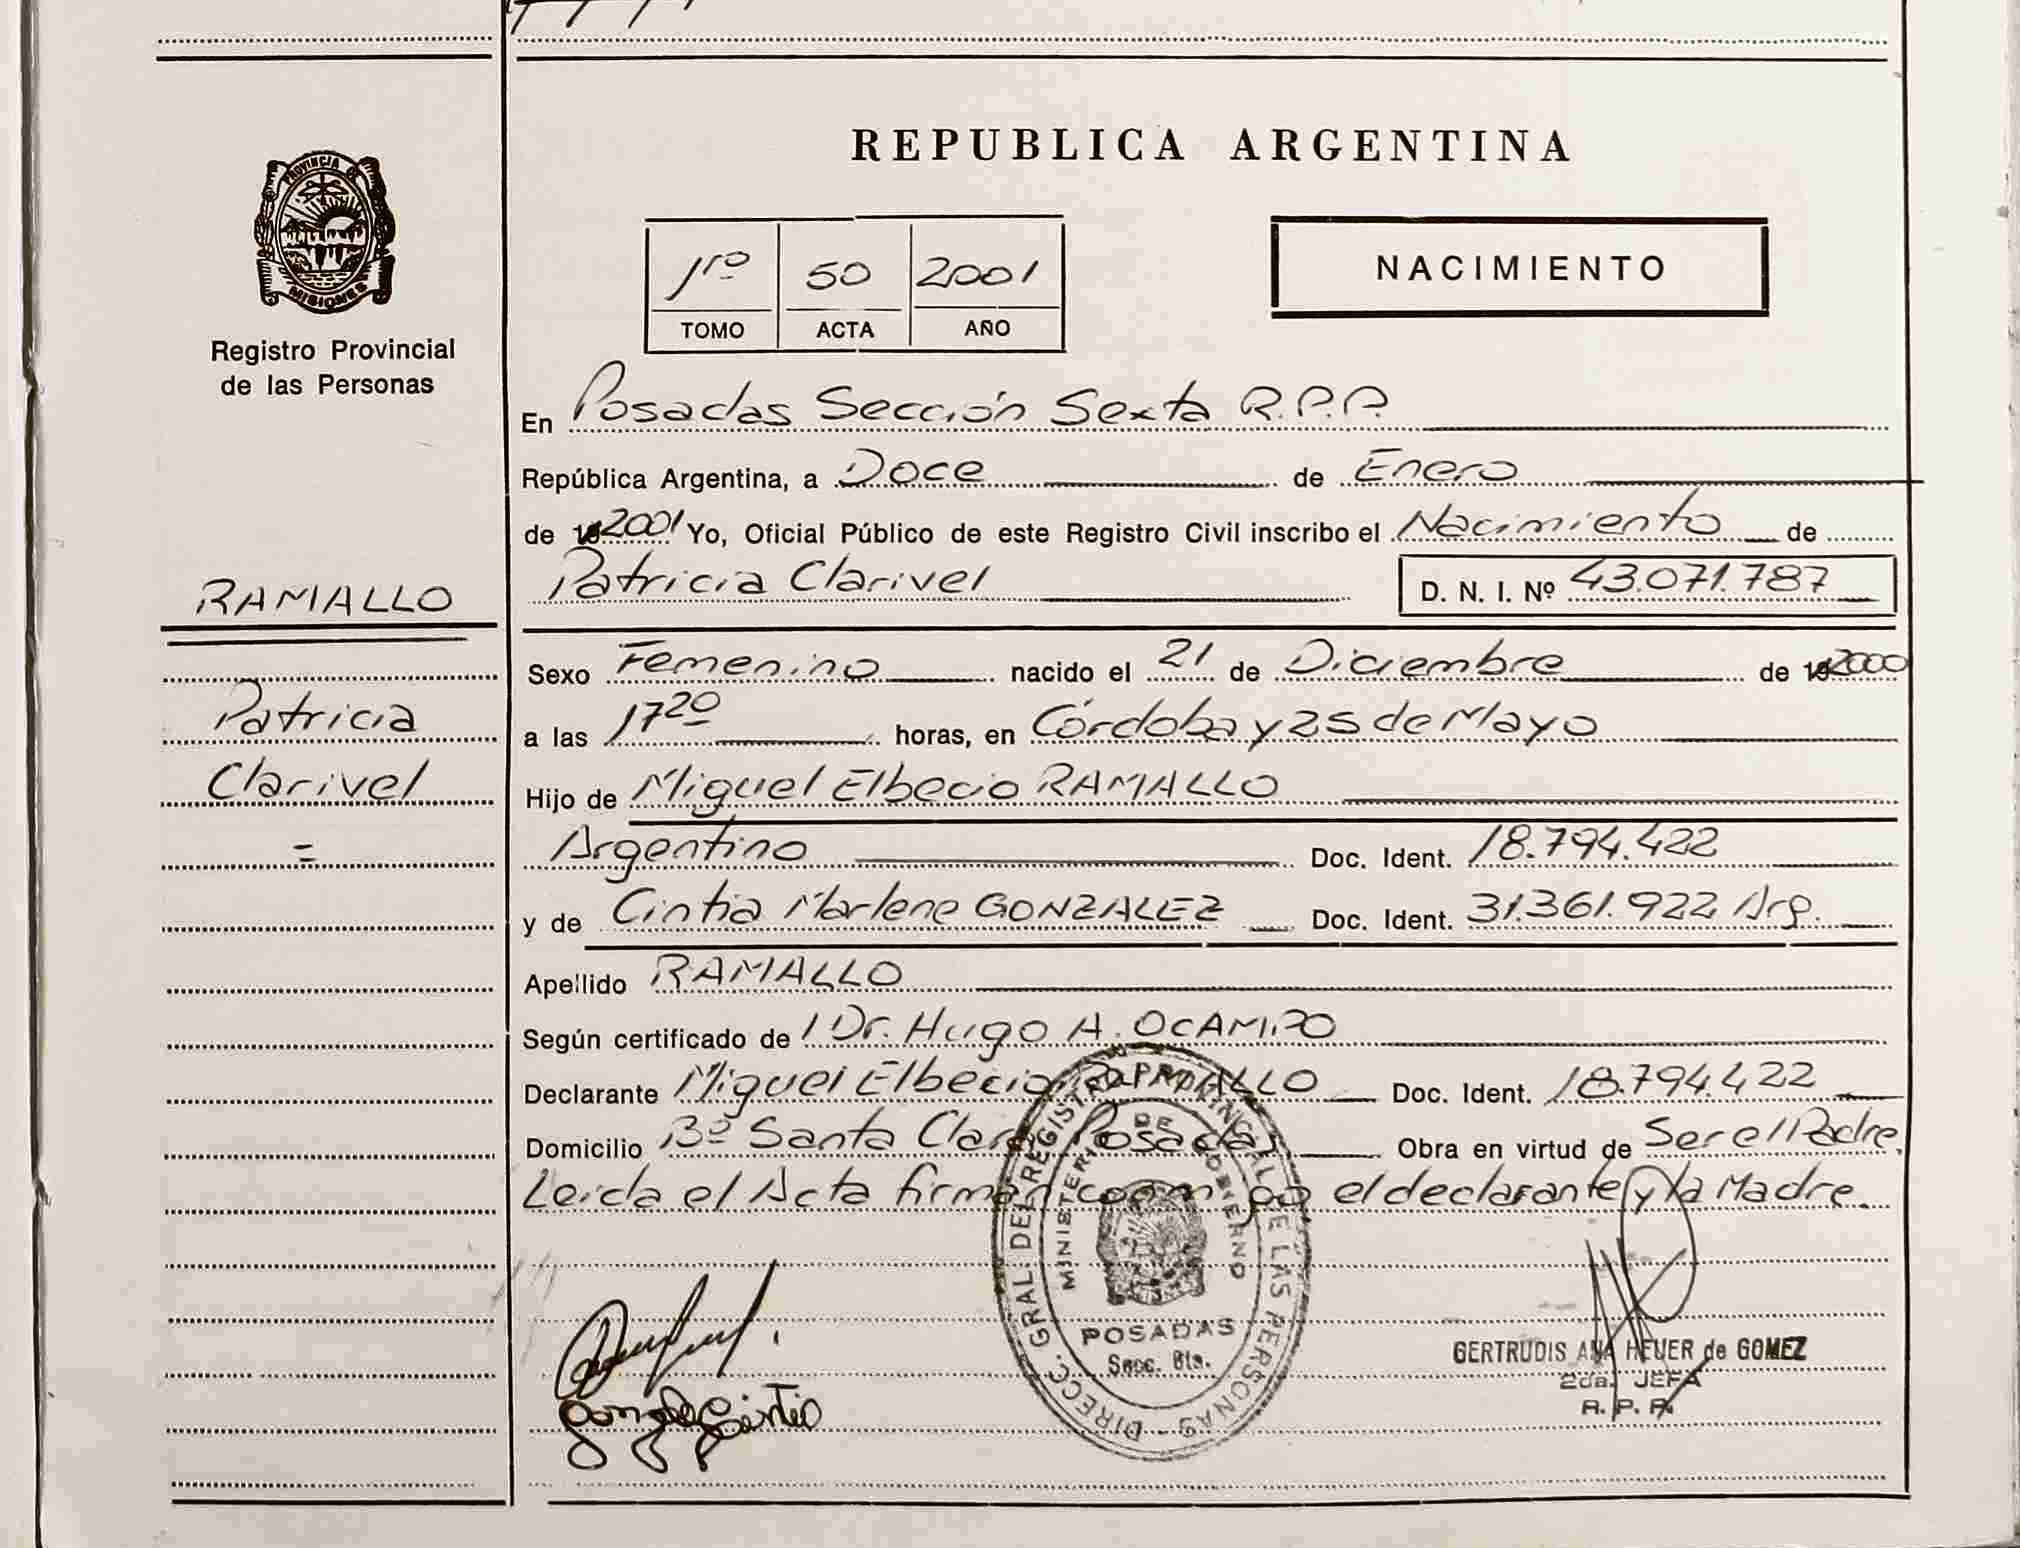 REPUBLICA ARGENTINA
PROVINCIA DE
MISIONES
Registro Provincial
de las Personas
1ro 50 2001
TOMO ACTA AÑO
NACIMIENTO
En Posadas Sección Sexta R.P.P.
República Argentina, a Doce de Enero
de 19 2001 Yo, Oficial Público de este Registro Civil inscribo el Nacimiento de
Patricia Clarivel D. N. I. Nº 43.071.787
RAMALLO
Patricia
Clarivel
=
Sexo Femenino nacido el 21 de Diciembre de 19 2000
a las 17 20 horas, en Córdoba y 25 de Mayo
Hijo de Miguel Elbecio RAMALLO
Argentino Doc. Ident. 18.794.422
y de Cintia Marlene GONZALEZ Doc. Ident. 31.361.922 Arg.
Apellido RAMALLO
Según certificado de / Dr. Hugo A. OCAMPO
Declarante Miguel Elbecio RAMALLO Doc. Ident. 18.794.422
Domicilio Bº Santa Clara Posadas Obra en virtud de Ser el Padre.
Leida el Acta firman conmigo el declarante y la Madre.
DIRECC. GRAL. DEL REGISTRO PROVINCIAL DE LAS PERSONAS
MINISTERIO DE GOBIERNO
POSADAS
Secc. 6ta.
Gonzalez Cintia
GERTRUDIS ANA HEUER de GOMEZ
2da. JEFA
R. P. P.